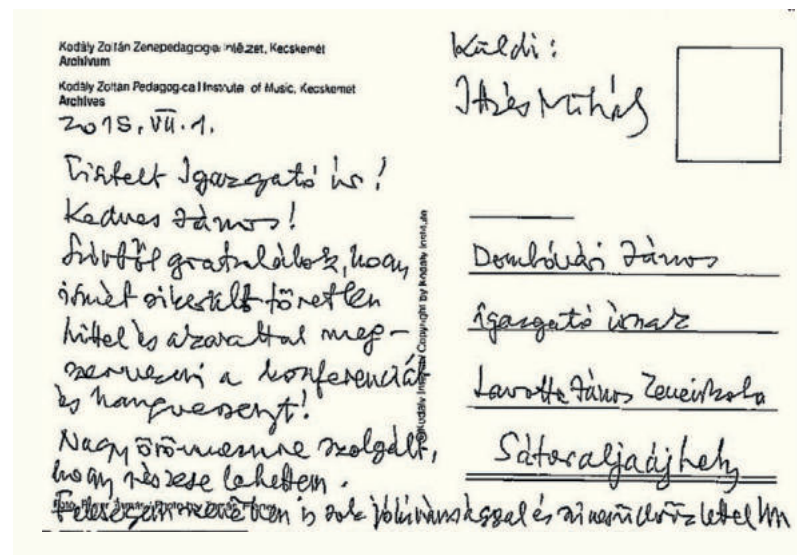 Kodály Zoltán Zenepedagógiai Intézet, Kecskemét
Archívum
Kodály Zoltán Pedagogical Institute of Music, Kecskemét
Archives
2015. VII. 1.
Tisztelt Igazgató úr!
Kedves János!
Szívből gratulálok, hogy
ismét sikerült töretlen
hittel és akarattal meg-
szervezni a konferenciát
és hangversenyt!
Nagy örömömre szolgált,
hogy részese lehettem.
Feleségem nevében is sok jókívánsággal és szíves üdvözlettel
©Kodály Institute Copyright by Kodály Institute
Küldi:
Ittzés Mihály
Dombóvári János
igazgató úrnak
Lavotta János Zeneiskola
Sátoraljaújhely